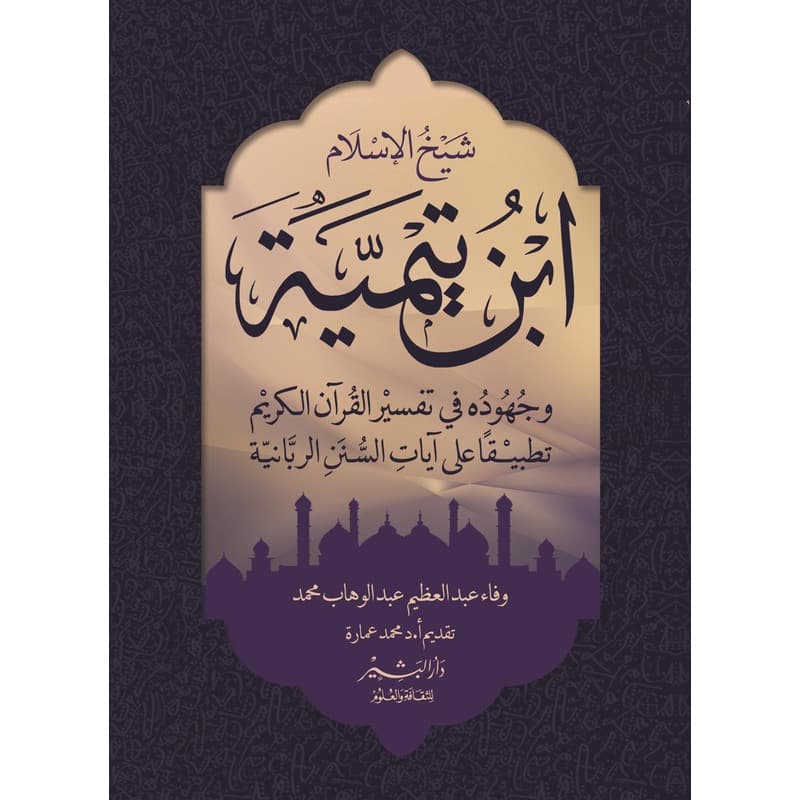 شَيْخُ الإِسْلَام
ابْنُ تَيْمِيَّةَ
وجُهُودُه في تفسيْر القُرآن الكريْم
تطبيْقًا على آياتِ السُّنَنِ الربَّانيّة
وفاء عبد العظيم عبد الوهاب محمد
تقديم أ.د محمد عمارة
دَارُ البَشِيْر
للثقافة والعلوم